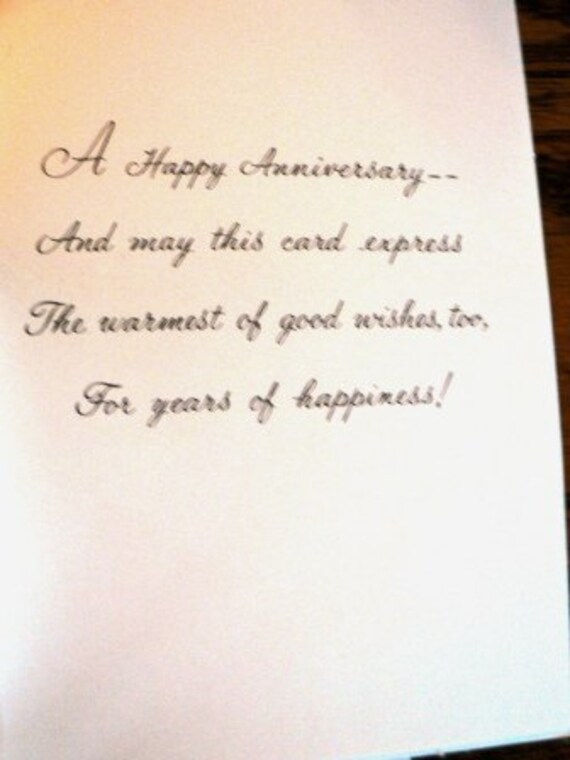 A Happy Anniversary--
And may this card express
The warmest of good wishes, too,
For years of happiness!